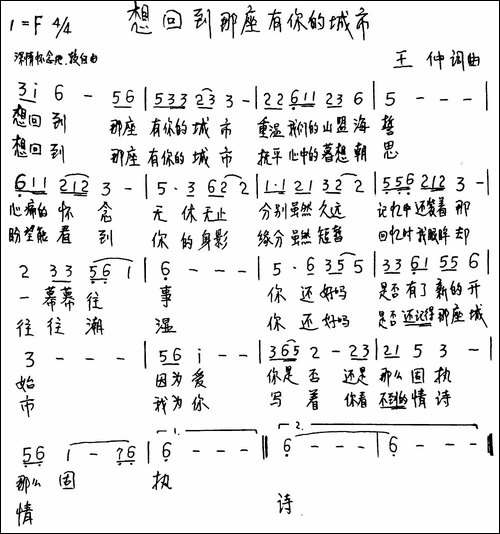 想回到那座有你的城市
1=F 4/4
深情怀念地、较自由
王 仲 词曲
3i 6 - 56 | 533 23 3 - | 22611 236 | 5 - - - |
想回到 那座 有你的城市 重温我们的山盟海誓
想回到 那座 有你的城市 抚平心中的暮想朝思
611 212 3 - | 5·3 62 2 | 1·1 21 32 2 | 556 212 3 - |
心痛的怀念 无休无止 分别虽然久远 记忆中还装着那
盼望能看到 你的身影 缘分虽然短暂 回忆时我眼眸却
2 33 56 1 | 6 - - - | 5·6 35 5 | 33 61 55 6 |
一幕幕往 事 你还好吗 是否有了新的开
往往潮 湿 你还好吗 是否还记得那座城
3 - - - | 56 i - - | 365 2 - 23 | 21 5 3 - |
始 因为爱 你是否 还是 那么固执
市 我为你 写着 你看 不到的情诗
1. 2.
56 1 - 76 | 6 - - - | 6 - - - | 6 - - - |
那么固 执
情 诗